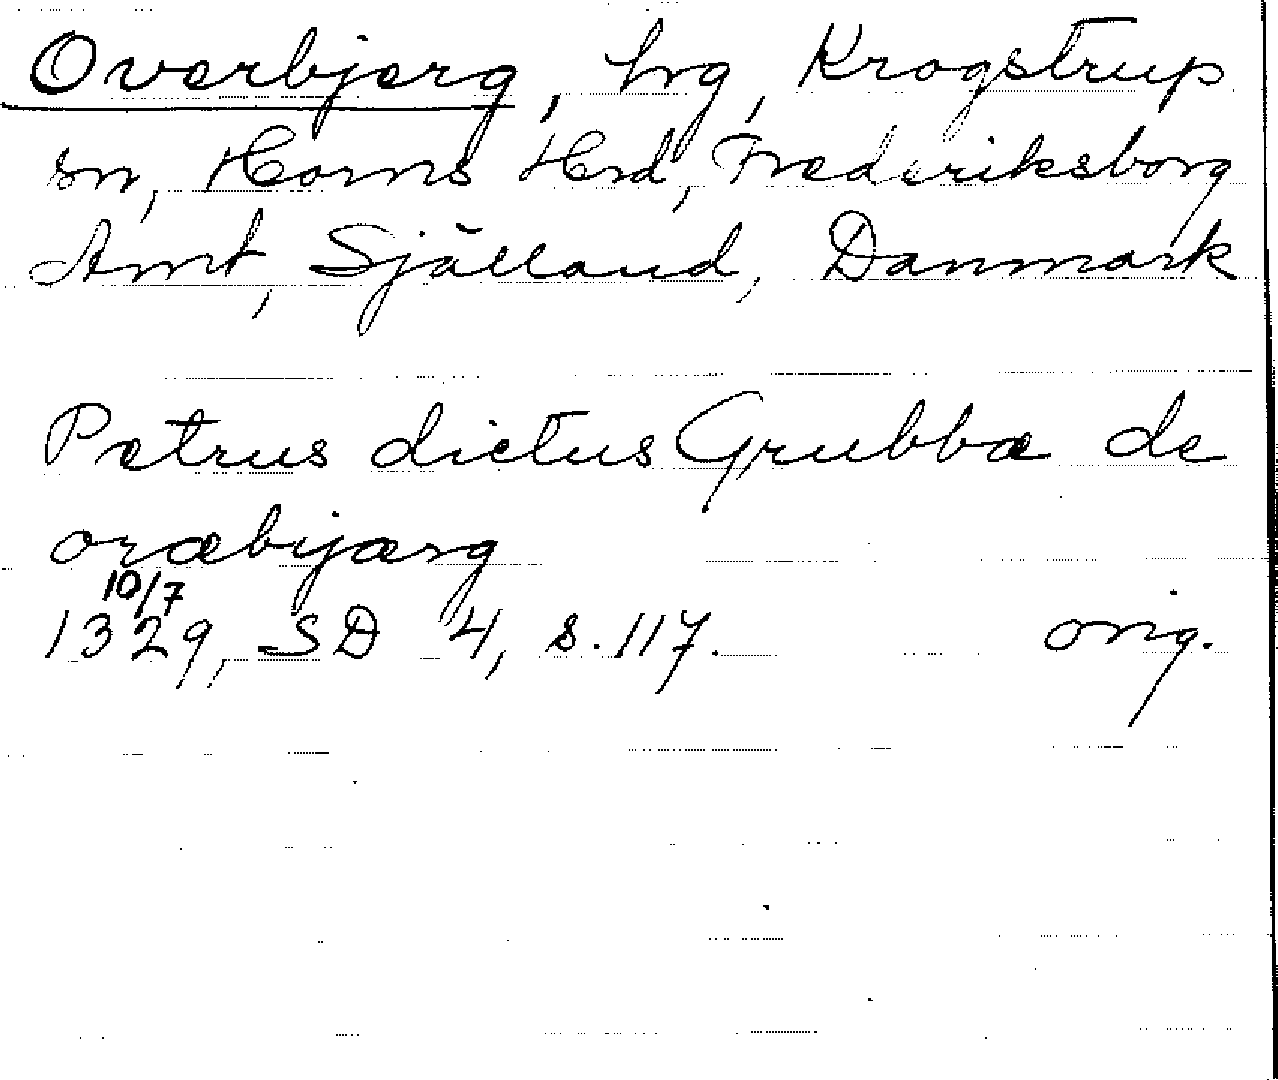 Overbjerg, hrg, Krogstrup
sn, Horns Hrd, Frederiksborg
Amt, Själland, Danmark
Petrus dictus Grubbæ de
oræbyærg
10/7
1329, SD 4, s. 117. orig.